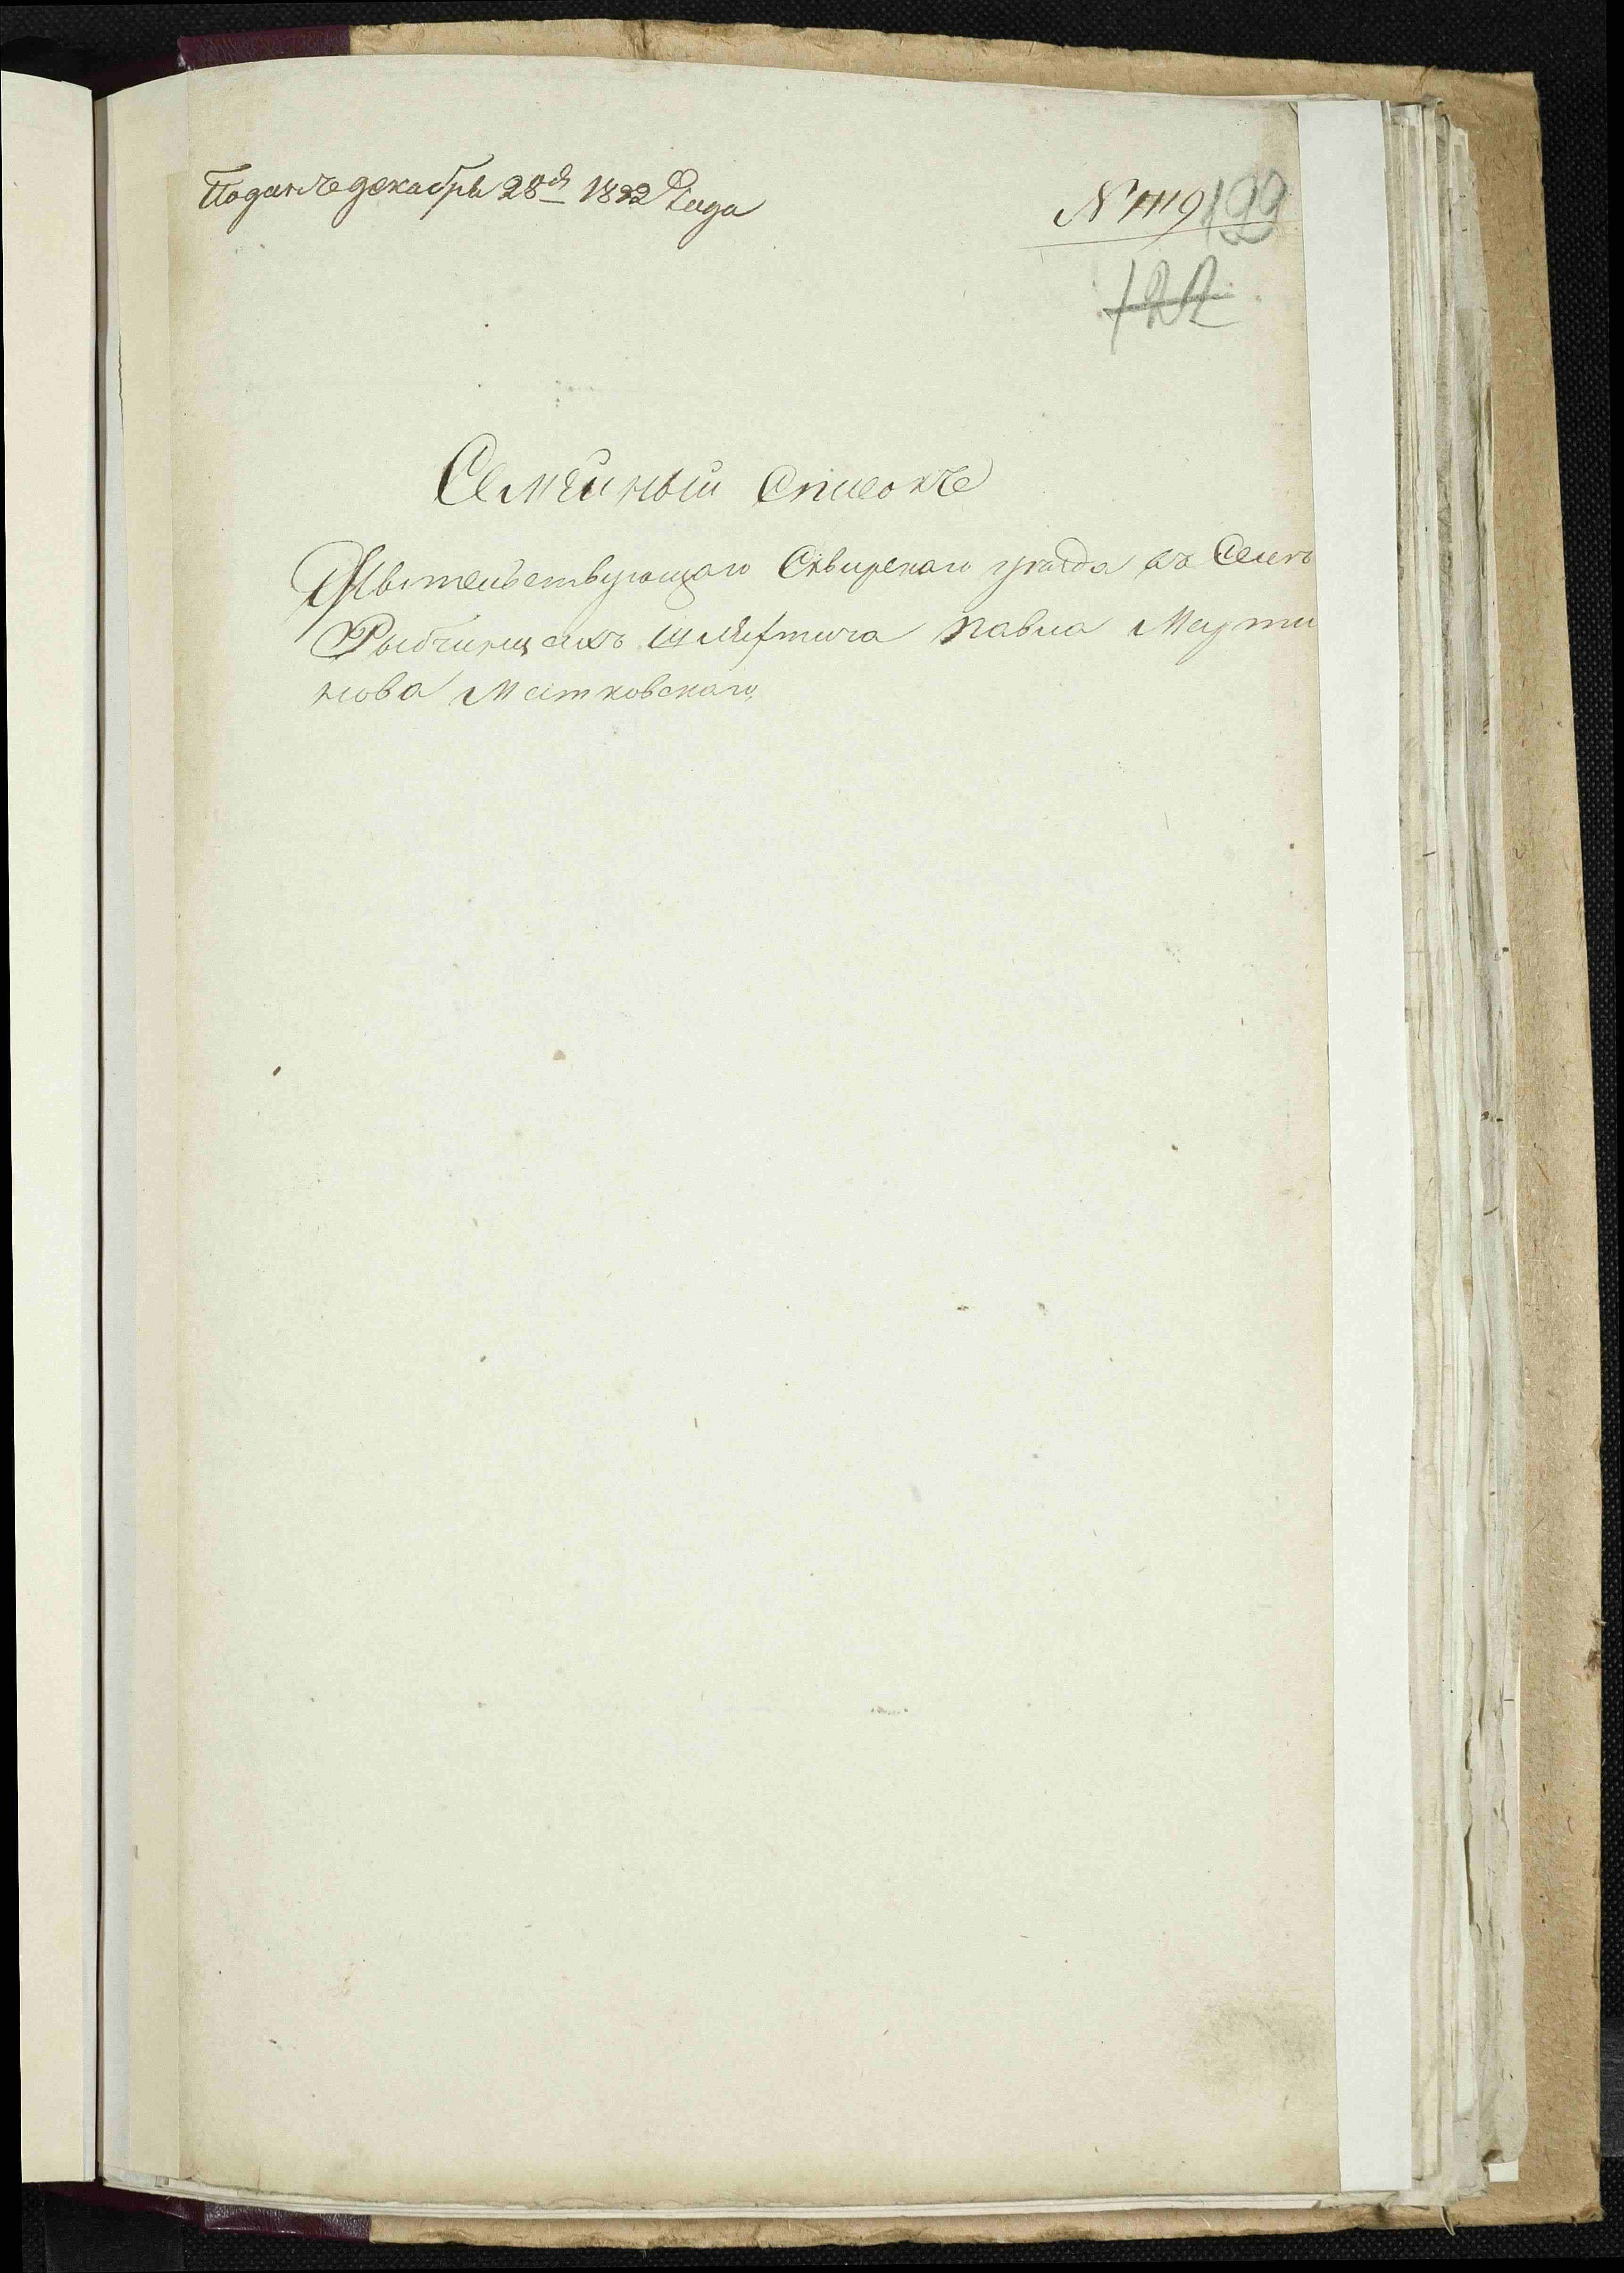 Поданъ декабря 28го 1832 Года
N 1119 199
122
Семейный Списокъ
Жытельствующаго Сквирскаго уѣзда въ Селѣ
Рыбчинцахъ Шляхтича Павла Марти
нова Матковскаго